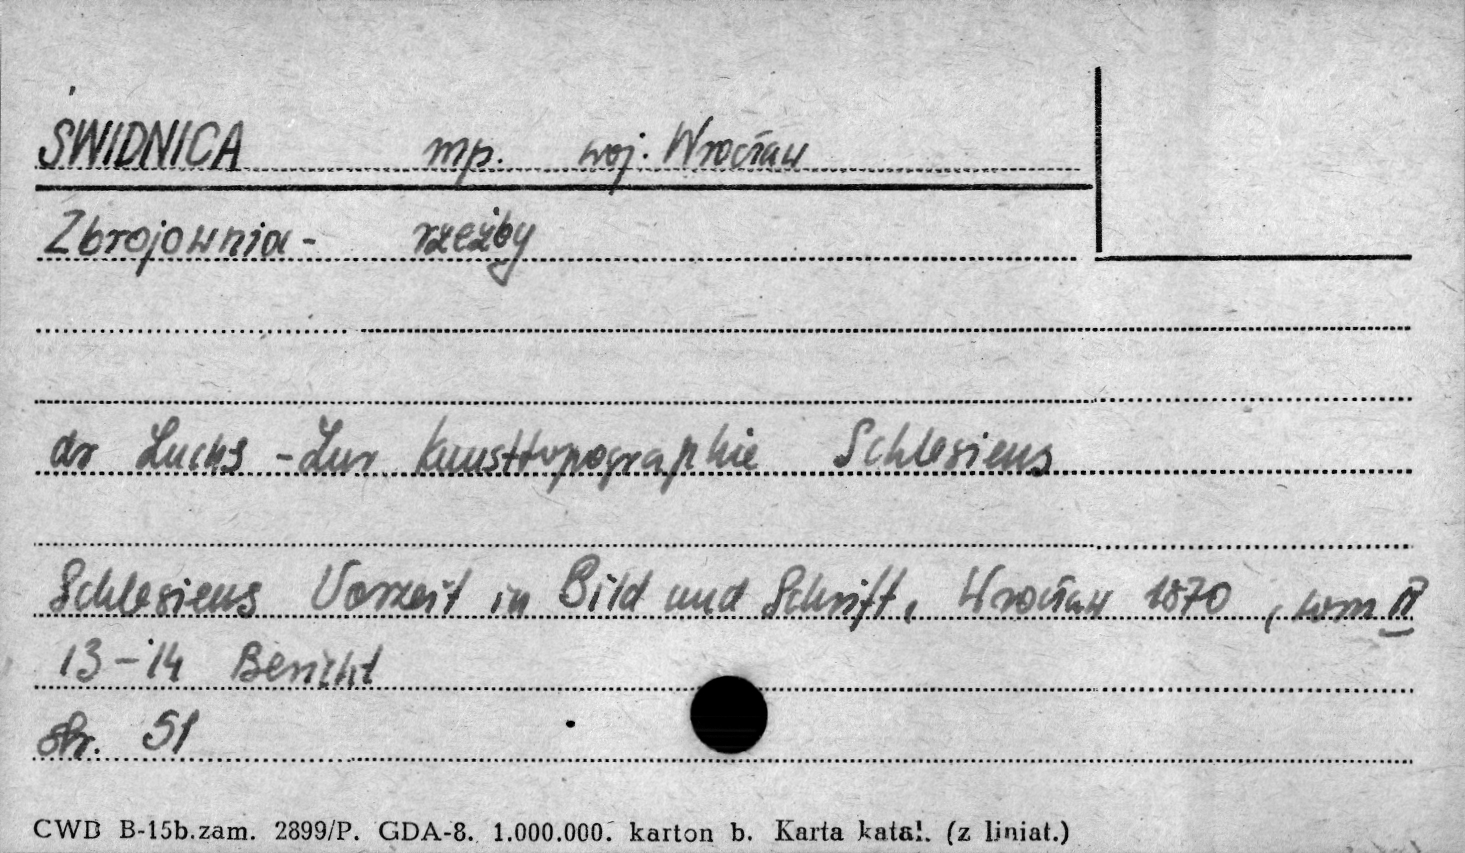 ŚWIDNICA mp. woj. Wrocław
Zbrojownia - rzeźby
dr Luchs - Zur Kunsttopographie Schlesiens
Schlesiens Vorzeit in Bild und Schrift, Wrocław 1870, tom II
13-14 Bericht
str. 51
CWD B-15b.zam. 2899/P. GDA-8. 1.000.000. karton b. Karta katal. (z liniat.)